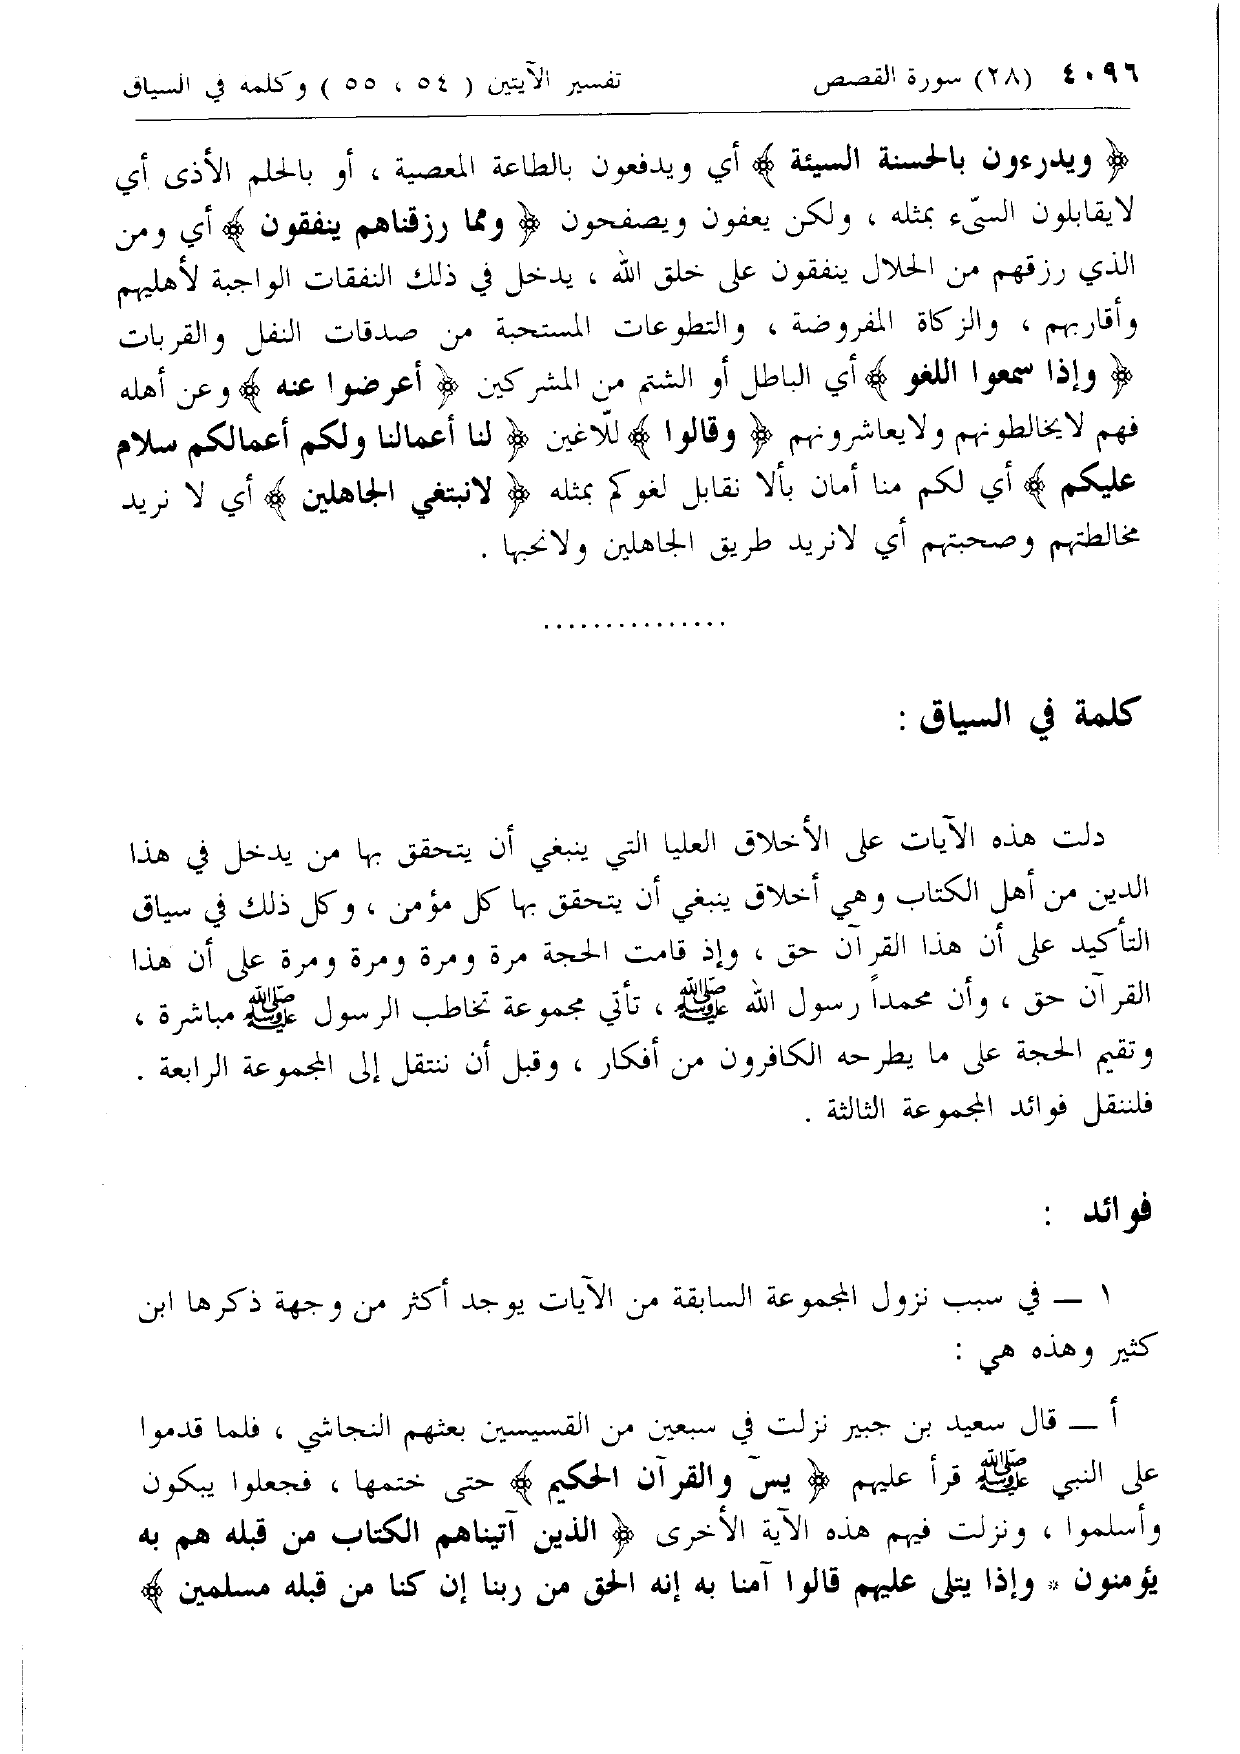 ٤٠٩٦ (٢٨) سورة القصص تفسير الآيتين ( ٥٤ ، ٥٥ ) وكلمه في السياق
﴿ ويدرءون بالحسنة السيئة ﴾ أي ويدفعون بالطاعة المعصية ، أو بالحلم الأذى أي
لايقابلون السيّء بمثله ، ولكن يعفون ويصفحون ﴿ ومما رزقناهم ينفقون ﴾ أي ومن
الذي رزقهم من الحلال ينفقون على خلق الله ، يدخل في ذلك النفقات الواجبة لأهليهم
وأقاربهم ، والزكاة المفروضة ، والتطوعات المستحبة من صدقات النفل والقربات
﴿ وإذا سمعوا اللغو ﴾ أي الباطل أو الشتم من المشركين ﴿ أعرضوا عنه ﴾ وعن أهله
فهم لايخالطونهم ولايعاشرونهم ﴿ وقالوا ﴾ للّاغين ﴿ لنا أعمالنا ولكم أعمالكم سلام
عليكم ﴾ أي لكم منا أمان بألا نقابل لغوكم بمثله ﴿ لانبتغي الجاهلين ﴾ أي لا نريد
مخالطتهم وصحبتهم أي لانريد طريق الجاهلين ولانحبها .
...............
كلمة في السياق :
دلت هذه الآيات على الأخلاق العليا التي ينبغي أن يتحقق بها من يدخل في هذا
الدين من أهل الكتاب وهي أخلاق ينبغي أن يتحقق بها كل مؤمن ، وكل ذلك في سياق
التأكيد على أن هذا القرآن حق ، وإذ قامت الحجة مرة ومرة ومرة ومرة على أن هذا
القرآن حق ، وأن محمداً رسول الله ﷺ ، تأتي مجموعة تخاطب الرسول ﷺ مباشرة ،
وتقيم الحجة على ما يطرحه الكافرون من أفكار ، وقبل أن ننتقل إلى المجموعة الرابعة .
فلننقل فوائد المجموعة الثالثة .
فوائد :
١ ــ في سبب نزول المجموعة السابقة من الآيات يوجد أكثر من وجهة ذكرها ابن
كثير وهذه هي :
أ ــ قال سعيد بن جبير نزلت في سبعين من القسيسين بعثهم النجاشي ، فلما قدموا
على النبي ﷺ قرأ عليهم ﴿ يسۤ والقرآن الحكيم ﴾ حتى ختمها ، فجعلوا يبكون
وأسلموا ، ونزلت فيهم هذه الآية الأخرى ﴿ الذين آتيناهم الكتاب من قبله هم به
يؤمنون * وإذا يتلى عليهم قالوا آمنا به إنه الحق من ربنا إن كنا من قبله مسلمين ﴾